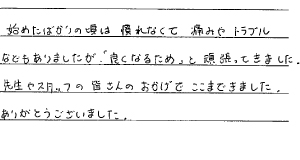 始めたばかりの頃は 慣れなくて 痛みや トラブル
などもありましたが、「良くなるため」と 頑張ってきました。
先生やスタッフの 皆さんの おかげで ここまできました。
ありがとうございました。